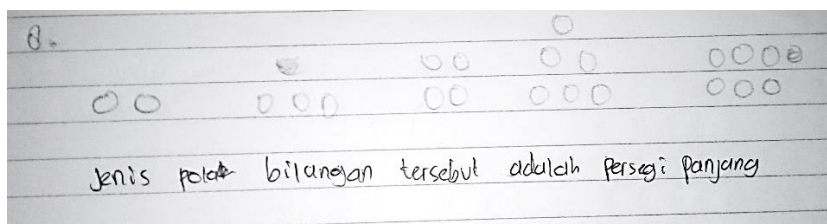 8.
Jenis pola bilangan tersebut adalah persegi panjang